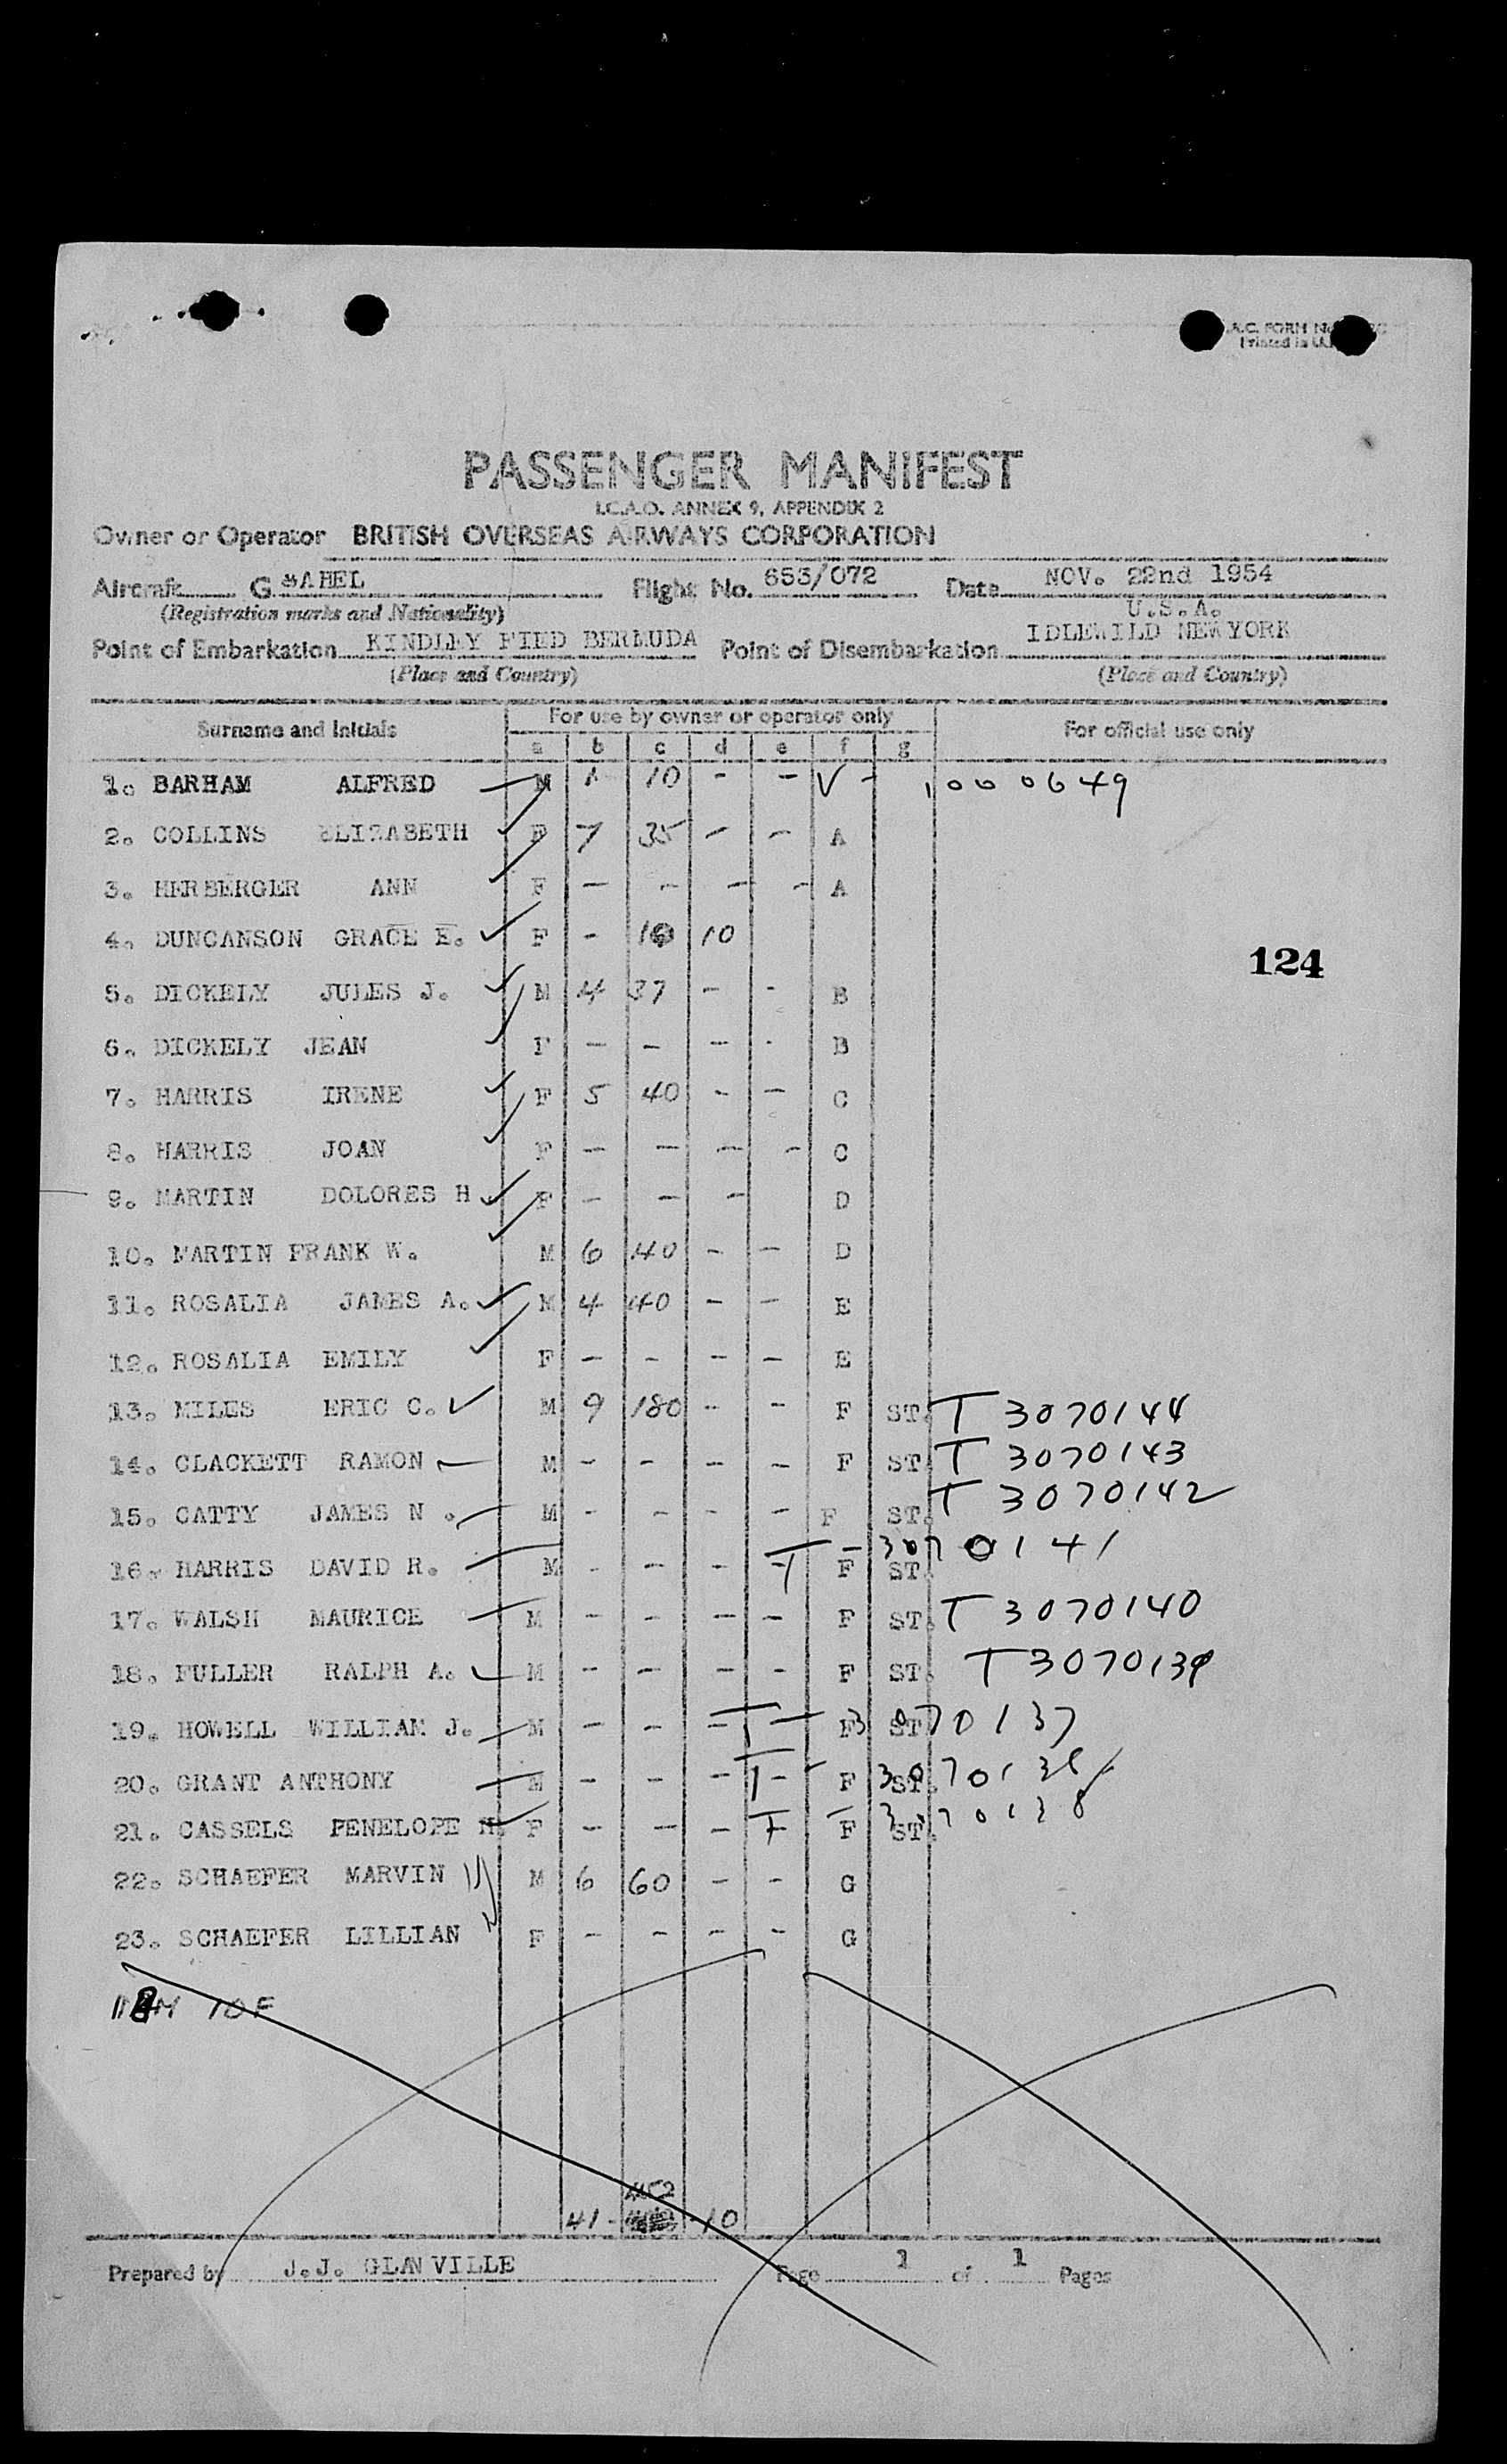 A.C. FORM No
Printed in U.K.
PASSENGER MANIFEST
I.C.A.O. ANNEX 9, APPENDIX 2
Owner or Operator BRITISH OVERSEAS AIRWAYS CORPORATION
Aircraft G Flight No. 653/072 Date NOV. 22nd 1954
(Registration marks and Nationality)
U.S.A.
Point of Embarkation KINDLEY FIED BERMUDA Point of Disembarkation IDLEWILD NEW YORK
(Place and Country) (Place and Country)
Surname and Initials For use by owner or operator only For official use only
a b c d e f g
1. BARHAM ALFRED M 1 10 - - V - 1000649
2. COLLINS ELIZABETH F 7 35 - - A
3. HERBERGER ANN F - - - - A
4. DUNCANSON GRACE E. F - 10 10
124
5. DICKELY JULES J. M 4 37 - - B
6. DICKELY JEAN F - - - - B
7. HARRIS IRENE F 5 40 - - C
8. HARRIS JOAN F - - - - C
9. MARTIN DOLORES H F - - - D
10. MARTIN FRANK W. M 6 40 - - D
11. ROSALIA JAMES A. M 4 40 - - E
12. ROSALIA EMILY F - - - - E
13. MILES ERIC C. M 9 180 - - F ST. T 3070144
14. CLACKETT RAMON M - - - - F ST T 3070143
15. CATTY JAMES N . M - - - - F ST. T 3070142
16. HARRIS DAVID R. M - - - - F ST. T-3070141
17. WALSH MAURICE M - - - - F ST. T 3070140
18. FULLER RALPH A. M - - - - F ST. T3070139
19. HOWELL WILLIAM J. M - - - - F ST T-3070137
20. GRANT ANTHONY M - - - - F ST. T-
21. CASSELS PENELOPE H. F - - - F ST. T-3070138
22. SCHAEFER MARVIN M 6 60 - - G
23. SCHAEFER LILLIAN F - - - - G
10F
452
41 - 10
Prepared by J.J. GLANVILLE Page 1 of 1 Pages